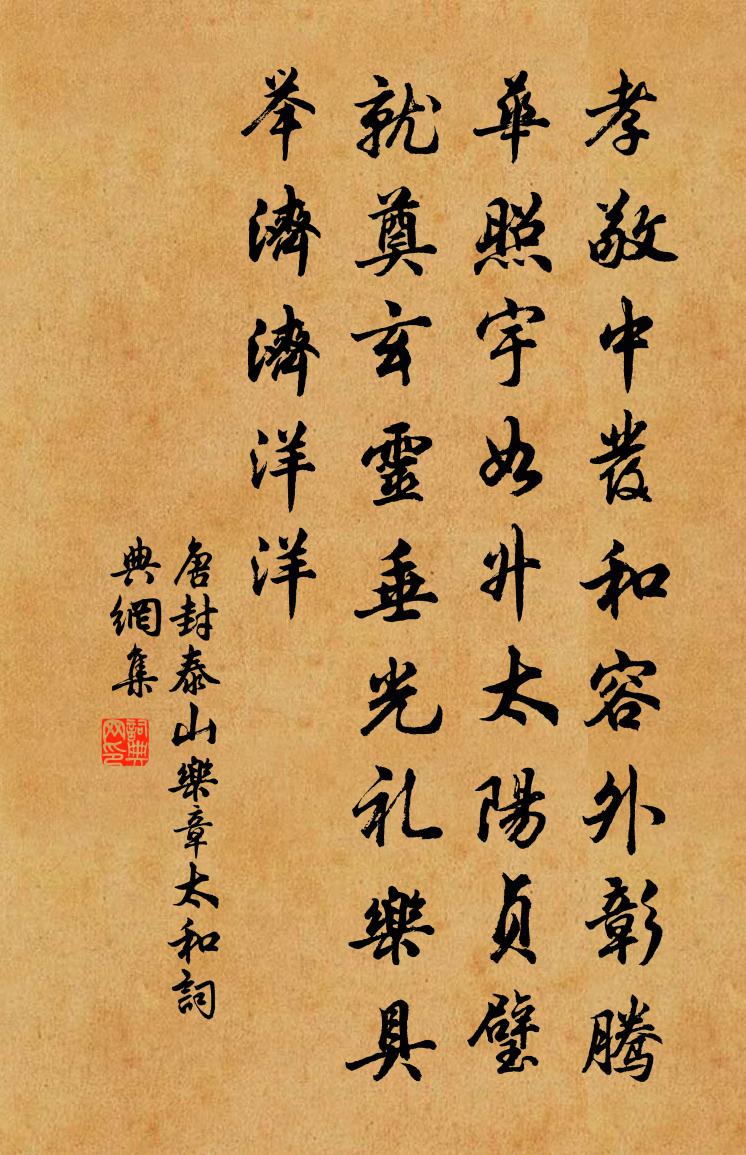 孝敬中發和容外彰騰
華照宇如升太陽貞璧
就奠玄靈垂光礼樂具
举濟濟洋洋
唐封泰山樂章太和詞
典網集
詞典網印